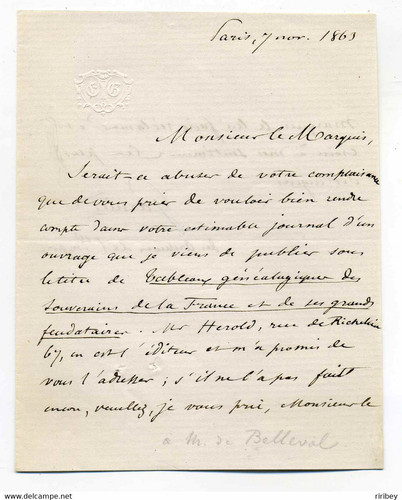 Paris, 7 nov. 1863
Monsieur le Marquis,
Serait-ce abuser de votre complaisance
que de vous prier de vouloir bien rendre
compte dans votre estimable journal d'un
ouvrage que je viens de publier sous
le titre de Tableaux généalogiques des
Souverains de la France et de ses grands
feudataires. Mr Herold, rue de Richelieu
67, en est l'éditeur et m'a promis de
vous l'adresser ; s'il ne l'a pas fait
encore, veuillez, je vous prie, Monsieur le
à M. de Belleval
www.delcampe.net
riribey